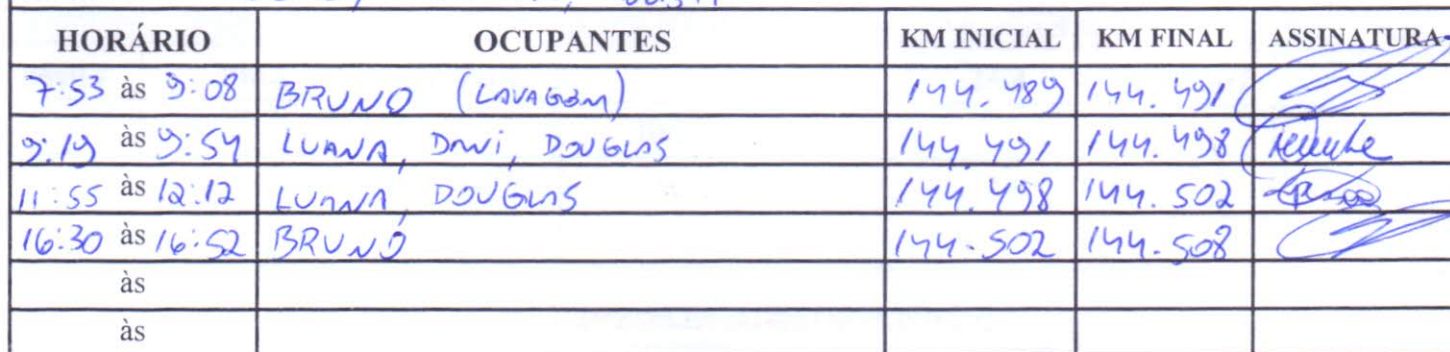 HORÁRIO OCUPANTES KM INICIAL KM FINAL ASSINATURA
7:53 às 9:08 BRUNO (LAVAGEM) 144.489 144.491
9:19 às 9:54 LUANA, DANI, DOUGLAS 144.491 144.498
11:55 às 12:12 LUANA, DOUGLAS 144.498 144.502
16:30 às 16:52 BRUNO 144.502 144.508
às
às